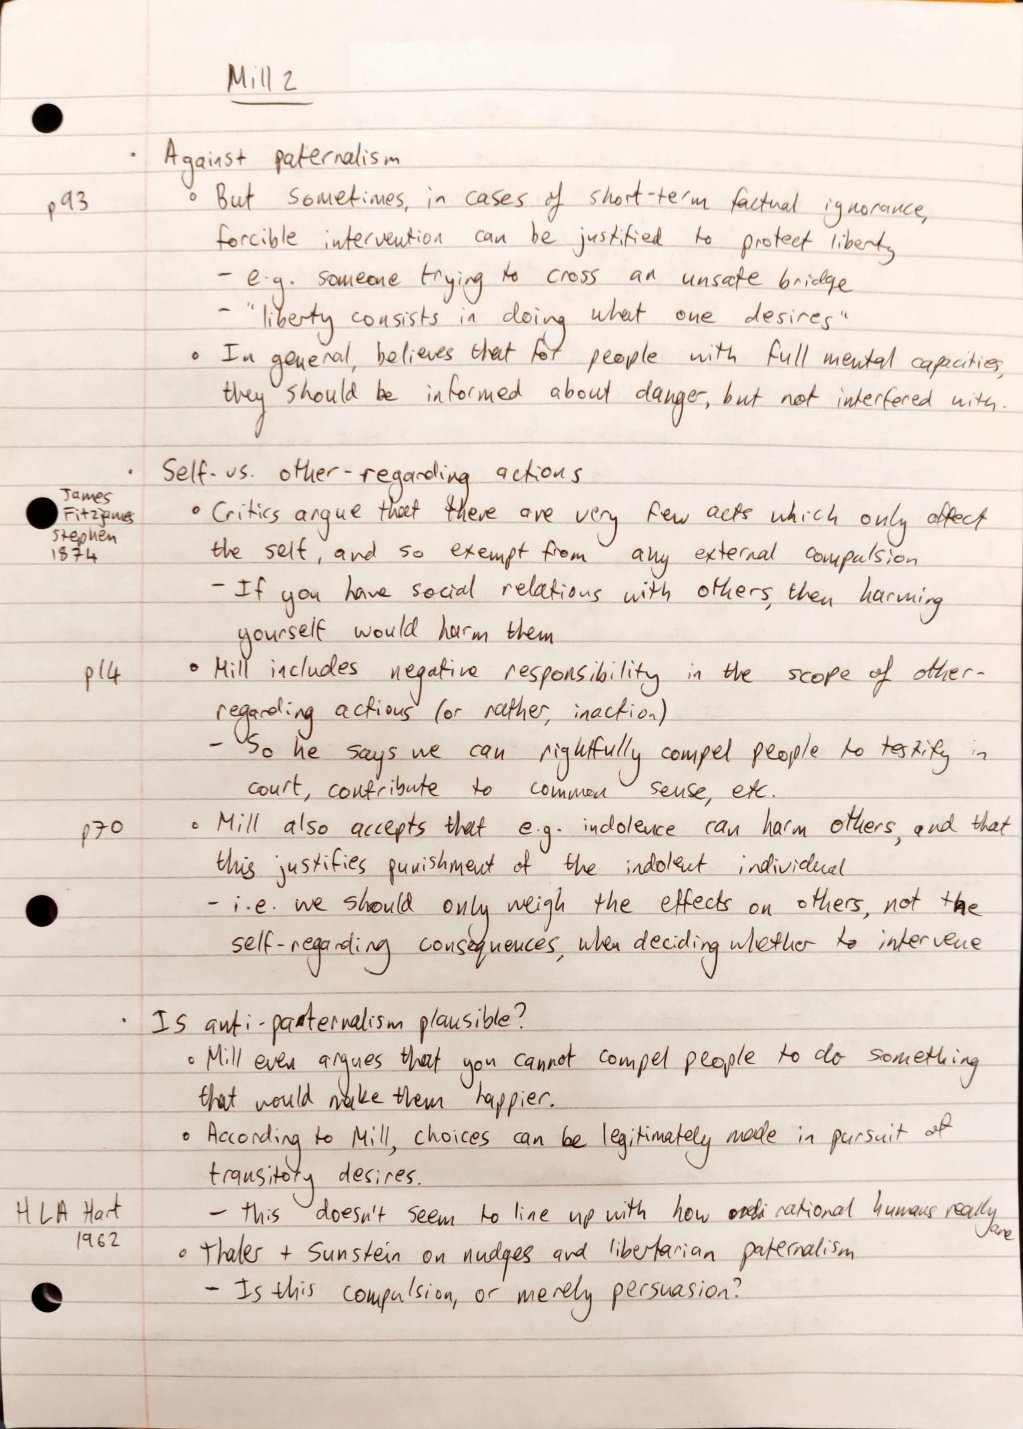 Mill 2
• Against paternalism
p93 ◦ But sometimes, in cases of short-term factual ignorance,
forcible intervention can be justified to protect liberty
- e.g. someone trying to cross an unsafe bridge
- "liberty consists in doing what one desires"
◦ In general, believes that for people with full mental capacities,
they should be informed about danger, but not interfered with.
• Self- vs. other-regarding actions
James
Fitzjames
Stephen
1874
◦ Critics argue that there are very few acts which only affect
the self, and so exempt from any external compulsion
- If you have social relations with others, then harming
yourself would harm them
p14 ◦ Mill includes negative responsibility in the scope of other-
regarding actions (or rather, inaction)
- So he says we can rightfully compel people to testify in
court, contribute to common sense, etc.
p70 ◦ Mill also accepts that e.g. indolence can harm others, and that
this justifies punishment of the indolent individual
- i.e. we should only weigh the effects on others, not the
self-regarding consequences, when deciding whether to intervene
• Is anti-paternalism plausible?
◦ Mill even argues that you cannot compel people to do something
that would make them happier.
◦ According to Mill, choices can be legitimately made in pursuit of
transitory desires.
HLA Hart
1962
- this doesn't seem to line up with how rational humans really
are
◦ Thaler + Sunstein on nudges and libertarian paternalism
- Is this compulsion, or merely persuasion?